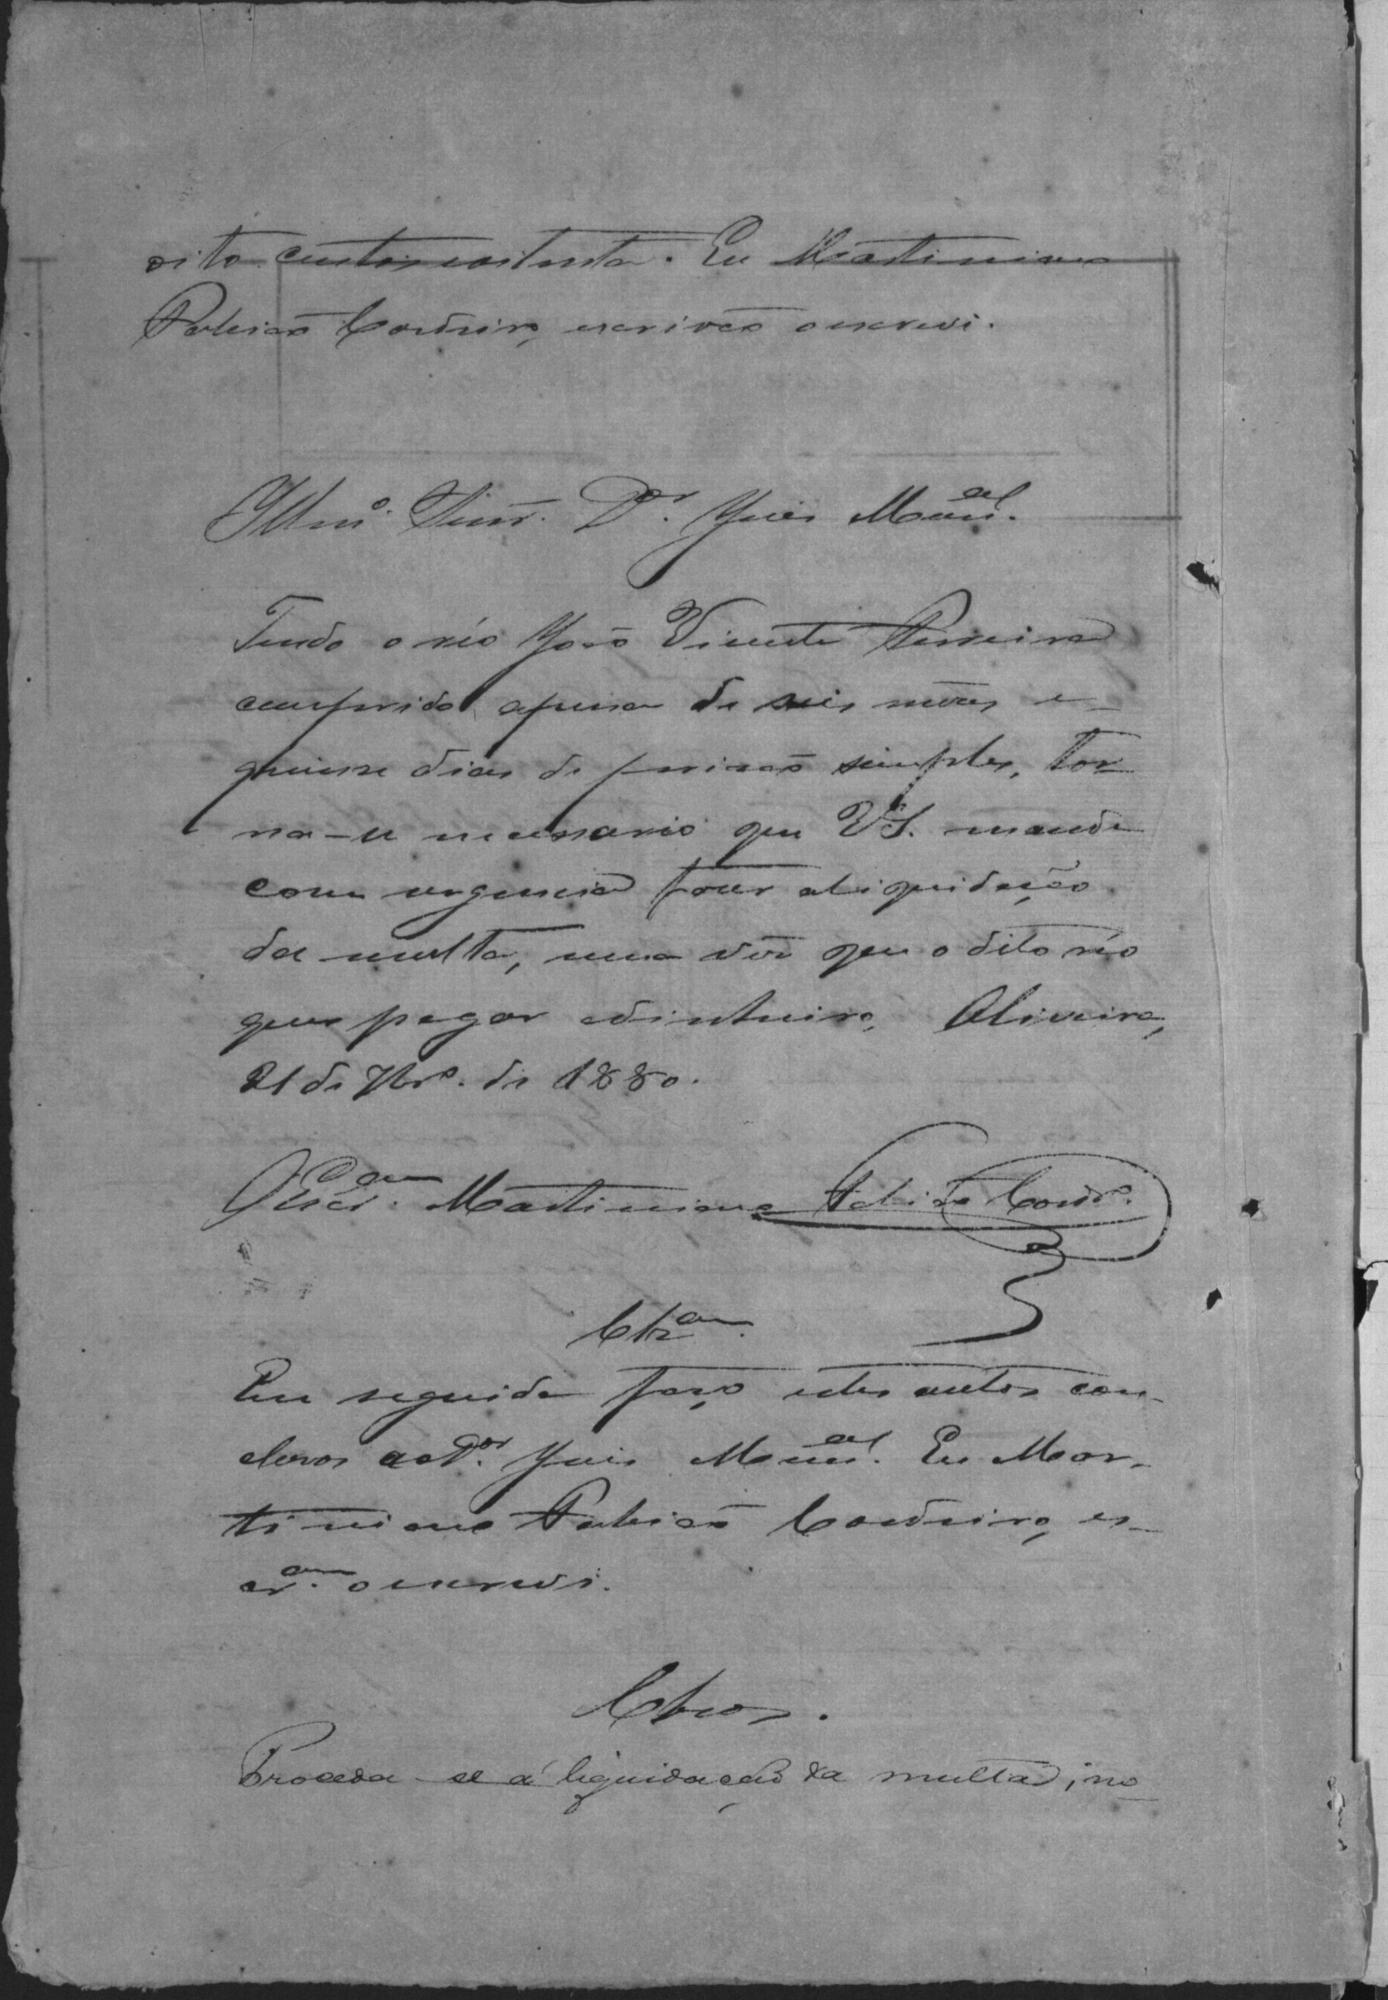 oito centos e oitenta. Eu Martiniano
Pulicas Cordeiro, escrivão o escrevi.
Illmo. Senr. Dor. Juis Munal.
Tendo o réo João Vicente Ferreira
cumprido apena de seis mêses e
quinse dias de prisão simples, tor
na-se necessario que VS. mande
com urgencia faser aliquidação
da multa, uma vês que o dito réo
quer pagar odinheiro, Oliveira,
21 de 7bro. de 1880.
O Escram. Martiniano Cordo.
Clzam.
Em seguida faço estes autos con-
clusos ao Dor. Juis Munal. Eu Mar-
tiniano Cordeiro, es-
cram. o escrevi.
Clzos.
Proceda-se á liquidação da multa, no